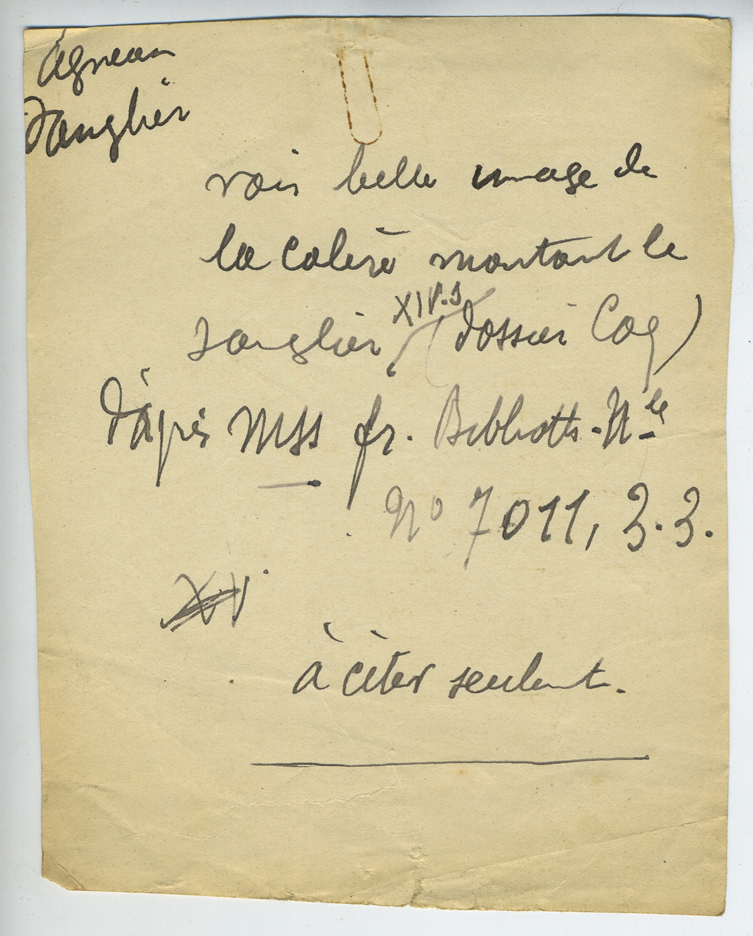 Agneau
Sanglier
voir belle image de
la Colère montant le
Sanglier XIV.s (dossier Coq)
d'après MSS fr. Biblioth. Nle
No 7011, 3.3.
XV
à citer seulent.